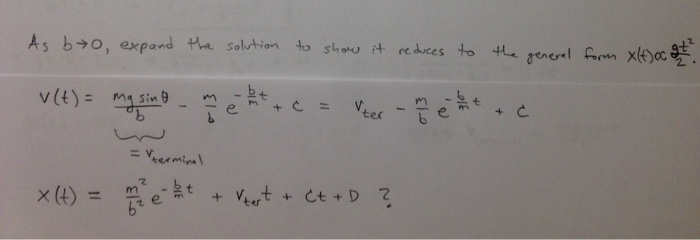 As b→0, expand the solution to show it reduces to the general form x(t)∝ gt²/2.
v(t) = mg sinθ/b - m/b e^(-b/m t) + c = v_ter - m/b e^(-b/m t) + c
= v_terminal
x(t) = m²/b² e^(-b/m t) + v_ter t + Ct + D ?